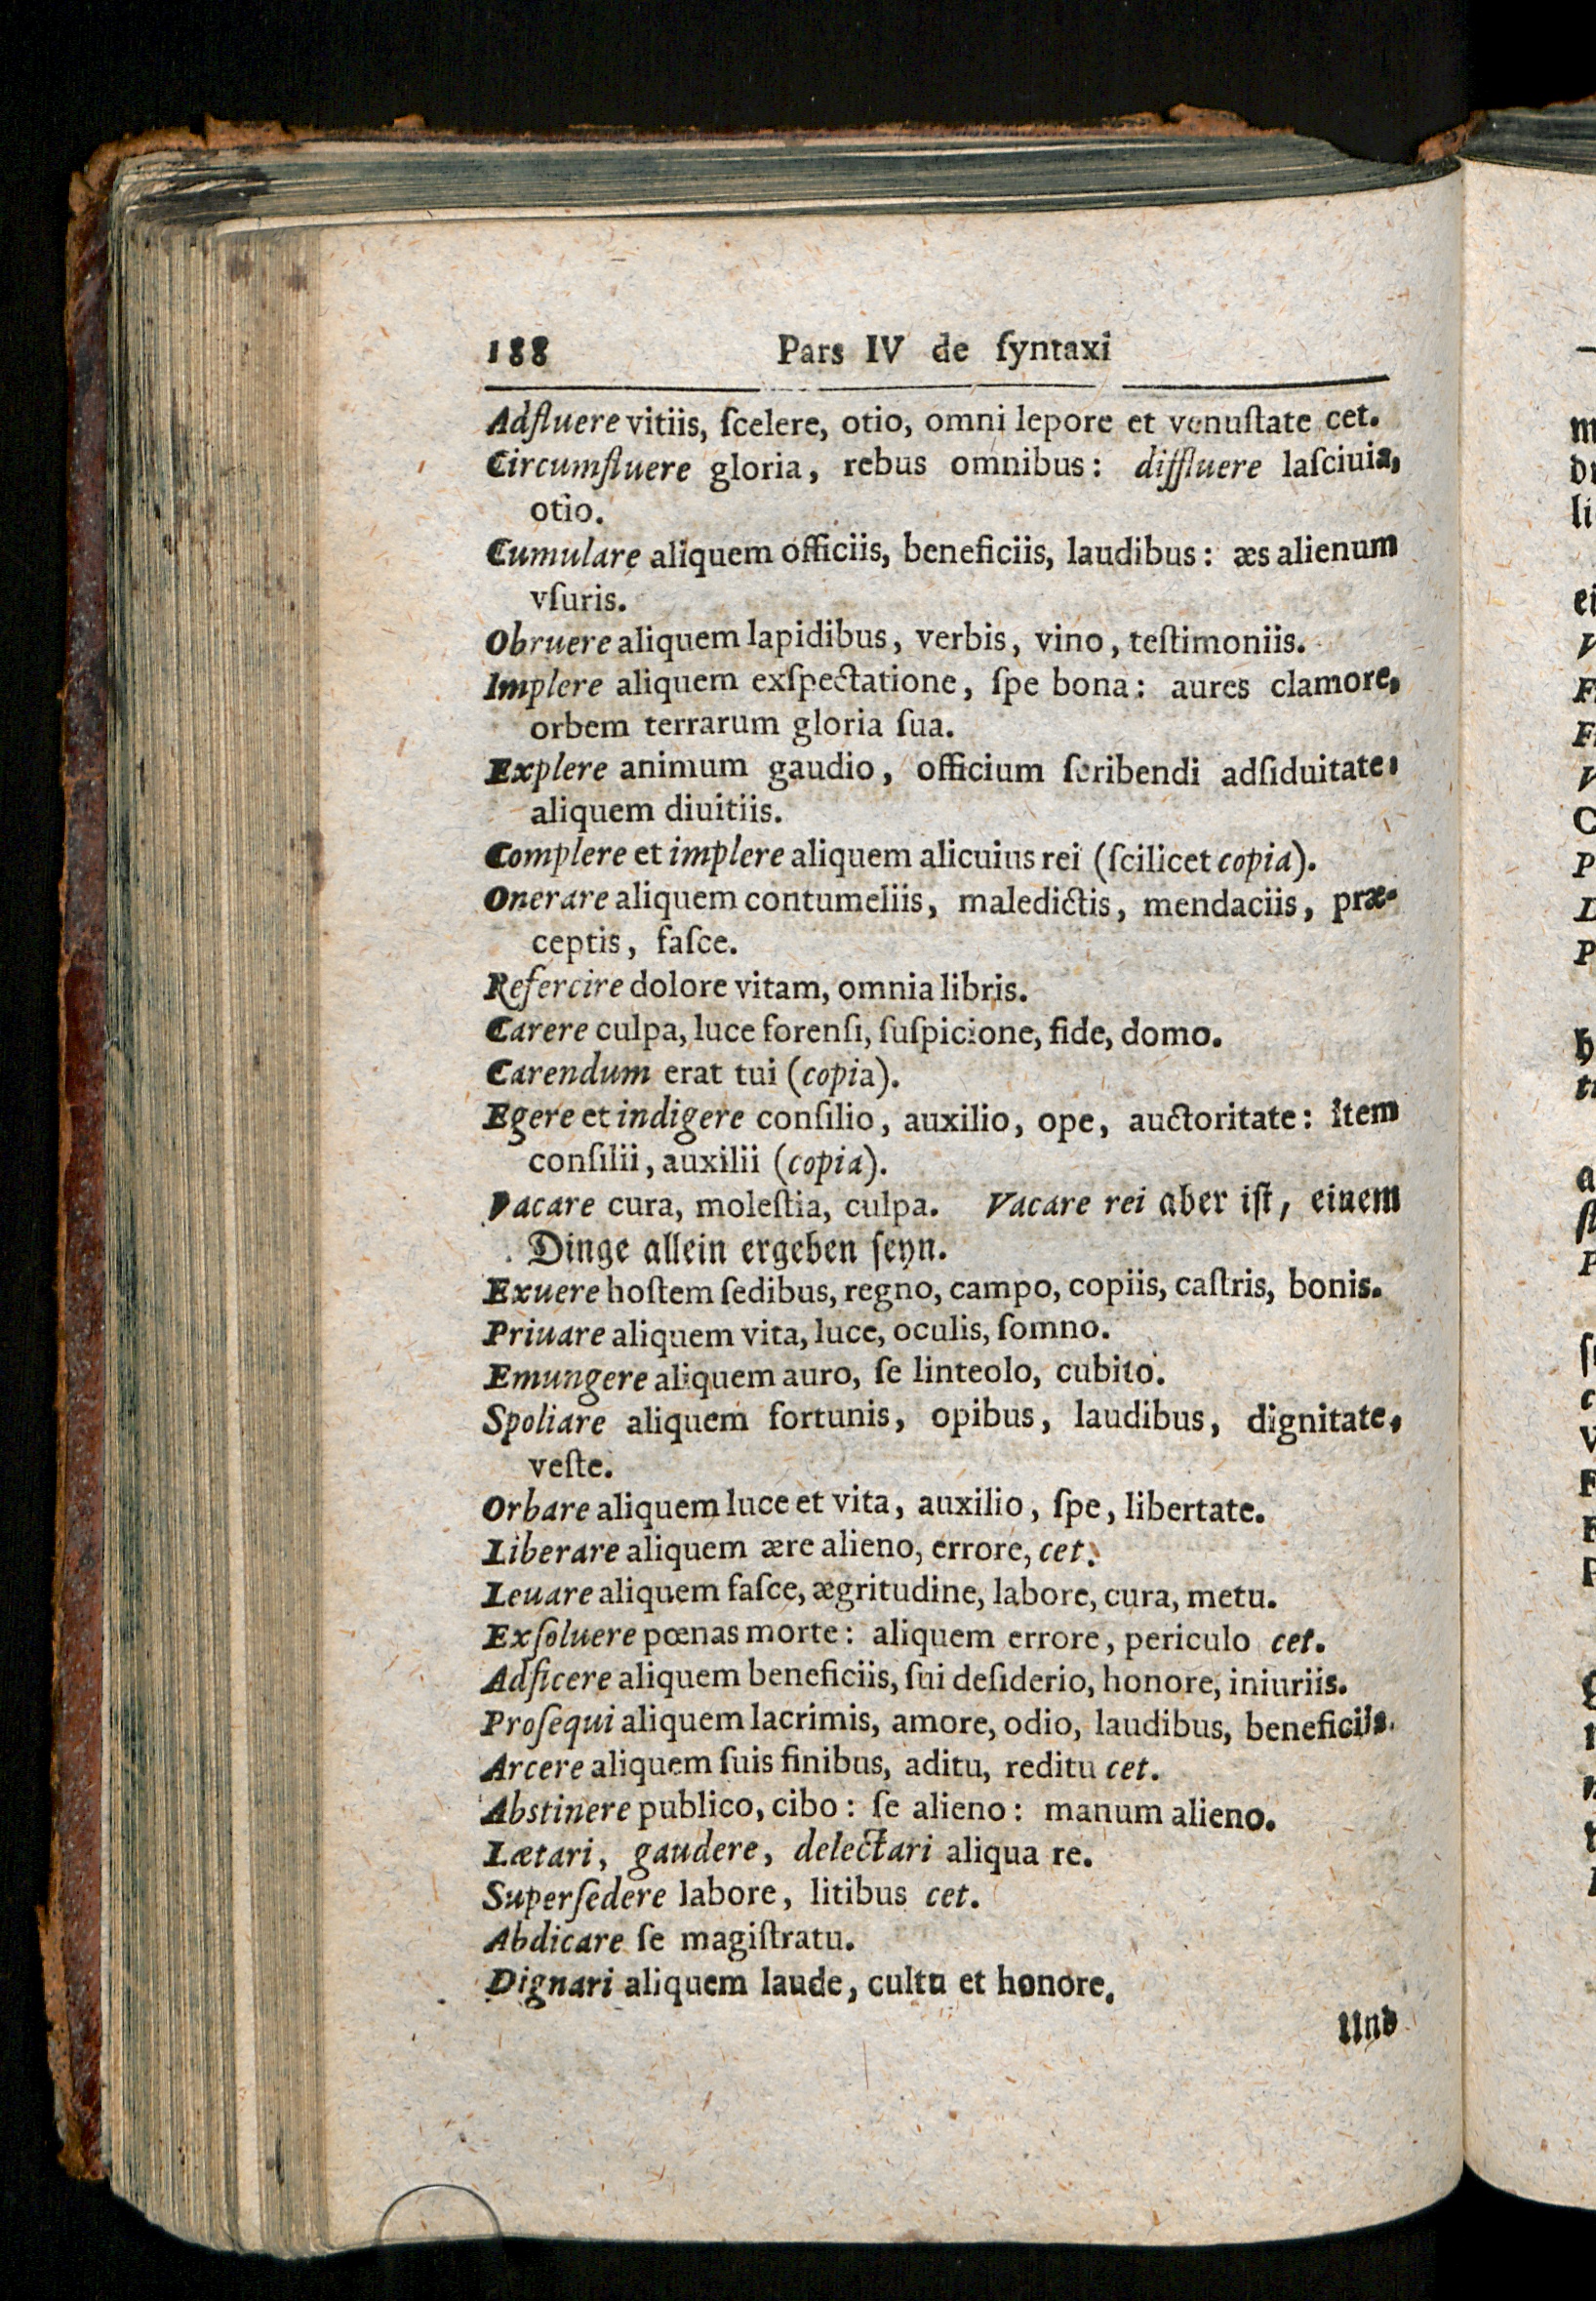 188 Pars IV de ſyntaxi
Adfluere vitiis, ſcelere, otio, omni lepore et venuſtate cet.
Circumfluere gloria, rebus omnibus: diffluere laſciuia,
otio.
Cumulare aliquem officiis, beneficiis, laudibus: æs alienum
vſuris.
Obruere aliquem lapidibus, verbis, vino, teſtimoniis.
Implere aliquem exſpectatione, ſpe bona: aures clamore,
orbem terrarum gloria ſua.
Explere animum gaudio, officium ſcribendi adſiduitate:
aliquem diuitiis.
Complere et implere aliquem alicuius rei (ſcilicet copia).
Onerare aliquem contumeliis, maledictis, mendaciis, præ-
ceptis, faſce.
Refercire dolore vitam, omnia libris.
Carere culpa, luce forenſi, ſuſpicione, fide, domo.
Carendum erat tui (copia).
Egere et indigere conſilio, auxilio, ope, auctoritate: item
conſilii, auxilii (copia).
Vacare cura, moleſtia, culpa. Vacare rei aber iſt, einem
Dinge allein ergeben ſeyn.
Exuere hoſtem ſedibus, regno, campo, copiis, caſtris, bonis.
Priuare aliquem vita, luce, oculis, ſomno.
Emungere aliquem auro, ſe linteolo, cubito.
Spoliare aliquem fortunis, opibus, laudibus, dignitate,
veſte.
Orbare aliquem luce et vita, auxilio, ſpe, libertate.
Liberare aliquem ære alieno, errore, cet.
Leuare aliquem faſce, ægritudine, labore, cura, metu.
Exſoluere pœnas morte: aliquem errore, periculo cet.
Adficere aliquem beneficiis, ſui deſiderio, honore, iniuriis.
Proſequi aliquem lacrimis, amore, odio, laudibus, beneficiis.
Arcere aliquem ſuis finibus, aditu, reditu cet.
Abstinere publico, cibo: ſe alieno: manum alieno.
Lætari, gaudere, delectari aliqua re.
Superſedere labore, litibus cet.
Abdicare ſe magiſtratu.
Dignari aliquem laude, cultu et honore.
Und